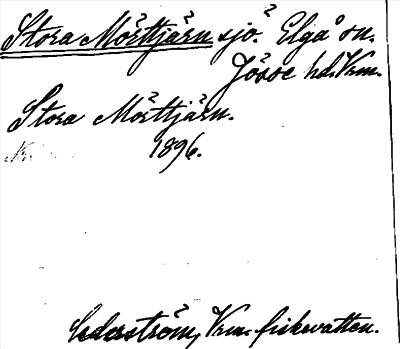 Stora Mörttjärn sjö.² Elgå sn.
Jösse hd. Vrm.
Stora Mörttjärn.
1896.
Cederström, Vrm. fiskevatten.